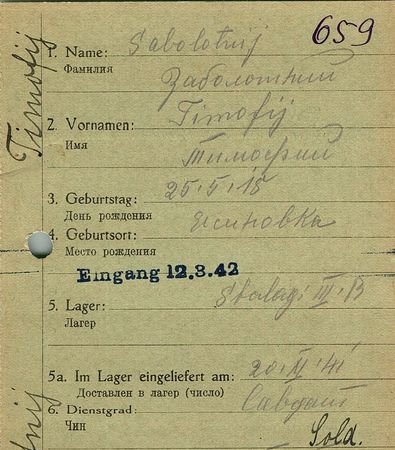 659
Timofij
1. Name: Sabolotnij
Фамилия Заболотний
2. Vornamen: Timofij
Имя Тимофий
3. Geburtstag: 25.5.15
День рождения
4. Geburtsort: Ясиновка
Место рождения
Eingang 12.3.42
5. Lager: Stalag III B
Лагер
5a. Im Lager eingeliefert am: 20.XI.41
Доставлен в лагер (число)
6. Dienstgrad:
Чин
Sold.